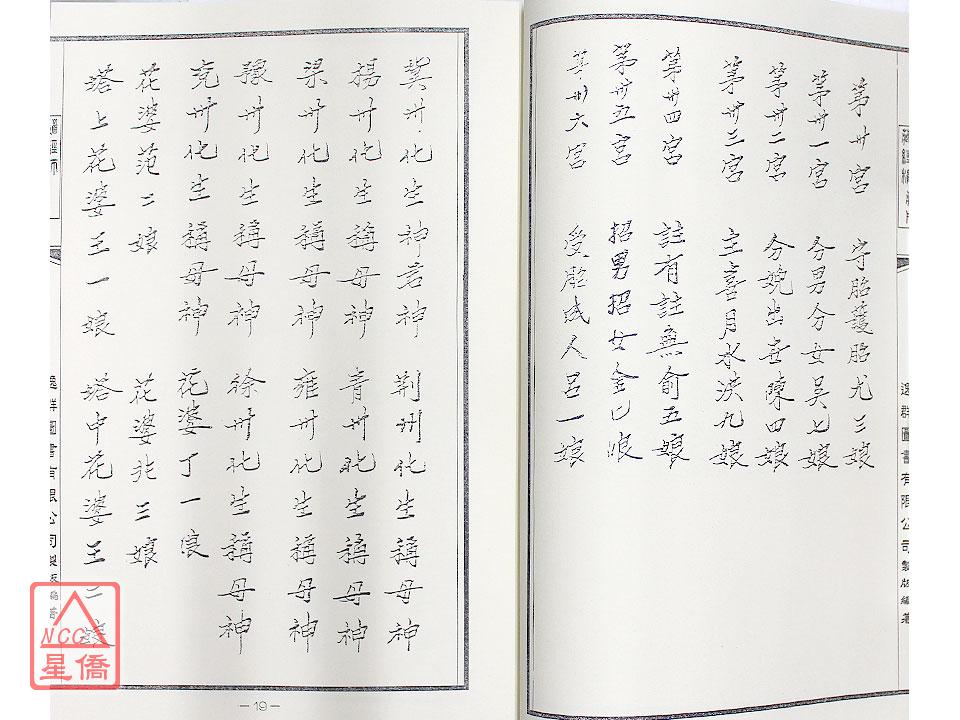 第卅宮 守胎護胎尤三娘
第卅一宮 分男分女吳七娘
第卅二宮 分娩出世陳四娘
第卅三宮 主喜月水洪九娘
第卅四宮 註有註無俞五娘
第卅五宮 招男招女金七娘
第卅六宮 受胎成人呂一娘
逸群圖書有限公司製版編著
冀州化生神君神 荆州化生稱母神
揚州化生稱母神 青州化生稱母神
梁州化生稱母神 雍州化生稱母神
豫州化生稱母神 徐州化生稱母神
兗州化生稱母神 花婆丁一娘
花婆范二娘 花婆 三娘
塔上花婆王一娘 塔中花婆王二娘
逸群圖書有限公司製版編著
—19—
NCC
星僑